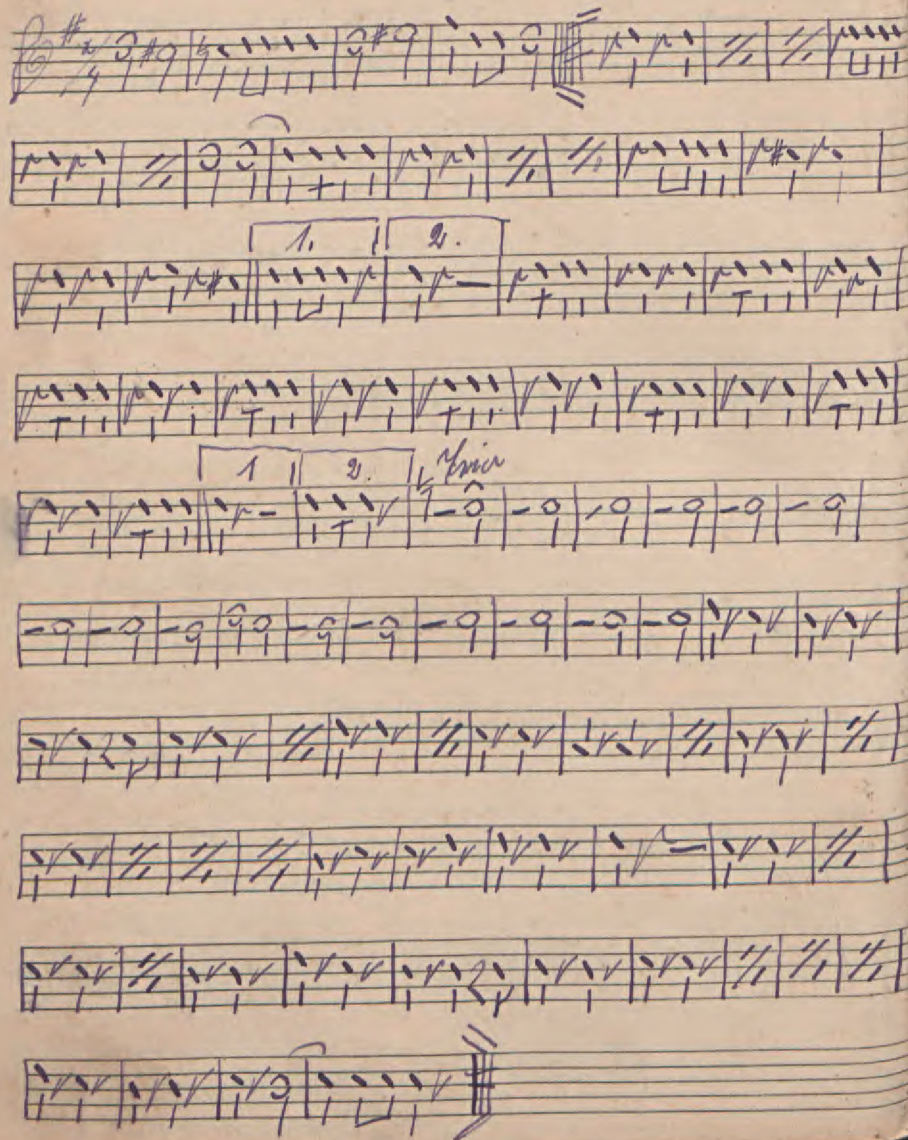 2/4
1. 2.
1 2. Trio